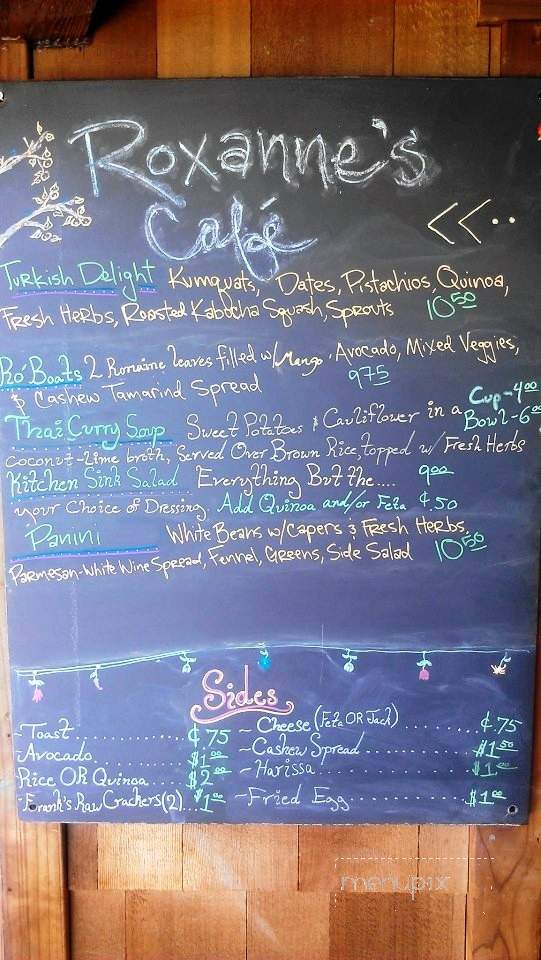 Roxanne's
Café
<<..
Turkish Delight Kumquats, Dates, Pistachios, Quinoa,
Fresh Herbs, Roasted Kabocha Squash, Sprouts 10.50
Ro' Boats 2 Romaine leaves filled w/ Mango, Avocado, Mixed Veggies,
& Cashew Tamarind Spread 9.75
Cup - 4.00
Thai Curry Soup Sweet Potatoes & Cauliflower in a Bowl - 6.00
coconut-lime broth, Served Over Brown Rice, topped w/ Fresh Herbs
Kitchen Sink Salad Everything But the.... 9.00
your Choice of Dressing. Add Quinoa and/or Feta ¢.50
Panini White Beans w/ Capers & Fresh Herbs,
Parmesan-White Wine Spread, Fennel, Greens, Side Salad 10.50
Sides
~Toast.............¢.75 ~Cheese (Feta OR Jack)..........¢.75
~Avocado..........$1.00 ~Cashew Spread............$1.50
Rice OR Quinoa....$2.00 ~Harissa.................$1.00
~Frank's Raw Crackers (2)...$1.00 ~Fried Egg.............$1.00
menupix